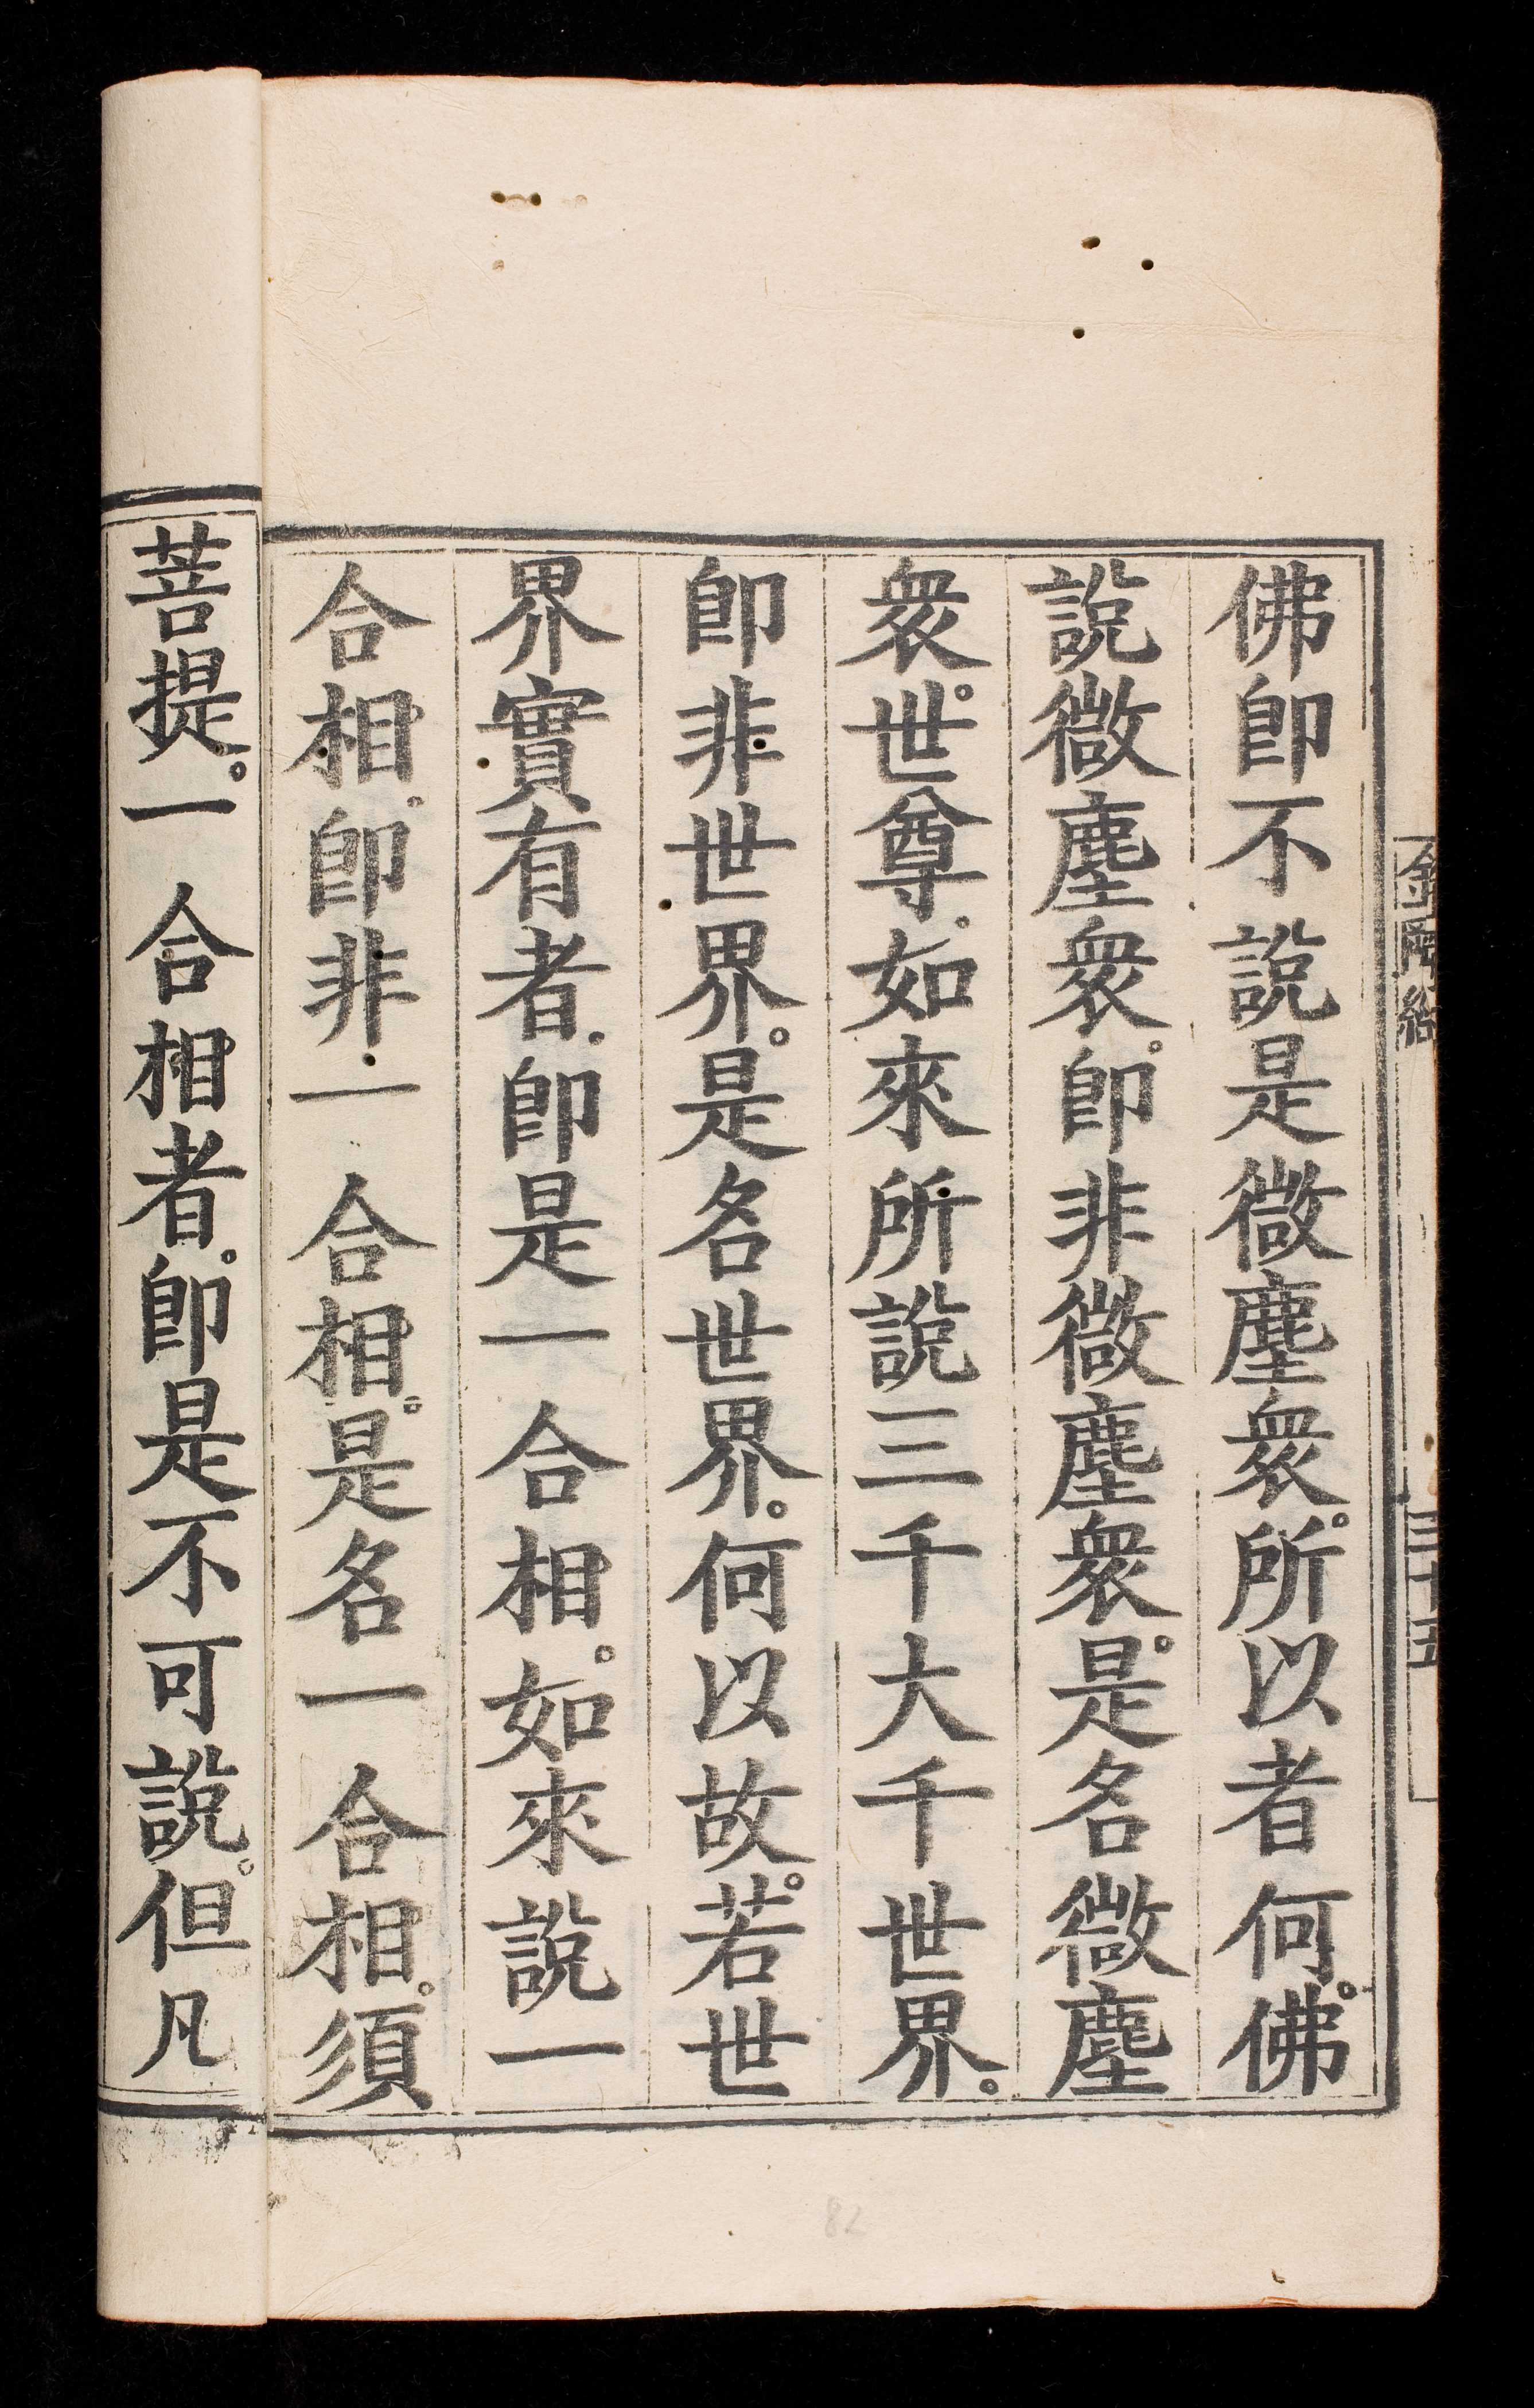 佛卽不說是微塵衆。所以者何。佛
說微塵衆。卽非微塵衆。是名微塵
衆。世尊。如來所說三千大千世界。
卽非世界。是名世界。何以故。若世
界實有者。卽是一合相。如來說一
合相。卽非一合相。是名一合相。須
菩提。一合相者。卽是不可說。但凡
金剛經
三十五
82